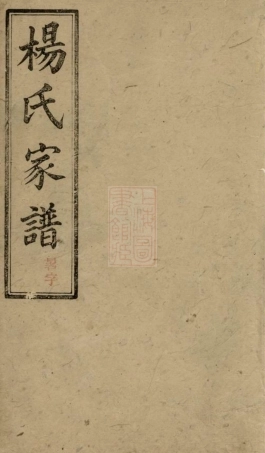 楊氏家譜